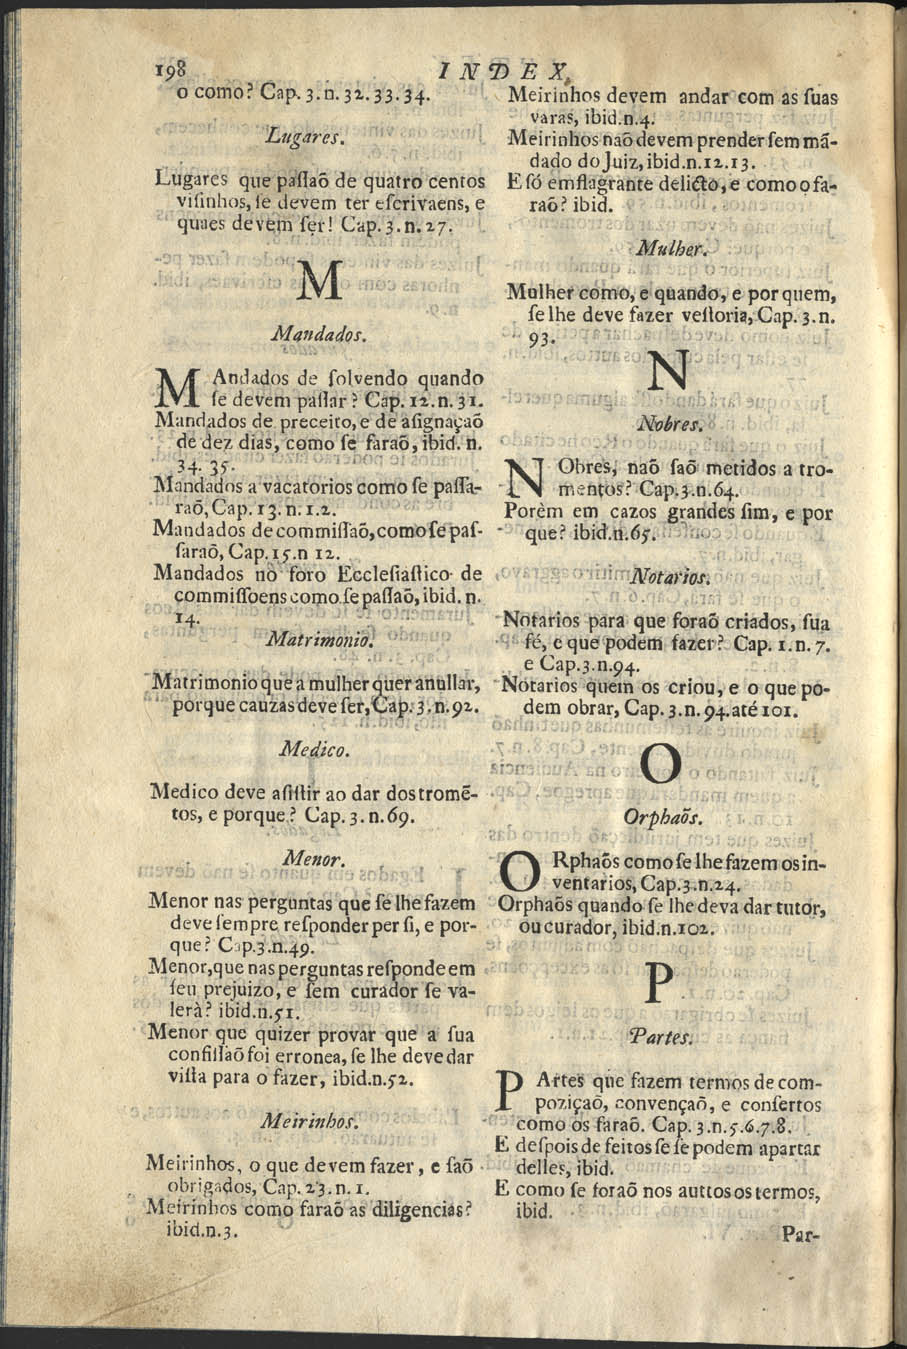 198
INDEX.
o como? Cap. 3. n. 32. 33. 34.
Lugares.
Lugares que paſſaõ de quatro centos
viſinhos, ſe devem ter eſcrivaens, e
quaes devem ſer! Cap. 3. n. 27.
M
Mandados.
MAndados de ſolvendo quando
ſe devem paſſar? Cap. 12. n. 31.
Mandados de preceito, e de aſignaçaõ
de dez dias, como ſe faraõ, ibid. n.
34. 35.
Mandados a vacatorios como ſe paſſa-
raõ, Cap. 13. n. 1. 2.
Mandados de commiſſaõ, como ſe paſ-
ſaraõ, Cap. 15. n 12.
Mandados no foro Eccleſiaſtico de
commiſſoens como ſe paſſaõ, ibid. n.
14.
Matrimonio.
Matrimonio que a mulher quer anullar,
porque cauzas deve ſer, Cap. 3. n. 92.
Medico.
Medico deve aſiſtir ao dar dos tromẽ-
tos, e porque? Cap. 3. n. 69.
Menor.
Menor nas perguntas que ſe lhe fazem
deve ſempre reſponder per ſi, e por-
que? Cap. 3. n. 49.
Menor, que nas perguntas reſponde em
ſeu prejuizo, e ſem curador ſe va-
lerà? ibid. n. 51.
Menor que quizer provar que a ſua
confiſſaõ foi erronea, ſe lhe deve dar
viſta para o fazer, ibid. n. 52.
Meirinhos.
Meirinhos, o que devem fazer, e ſaõ
obrigados, Cap. 23. n. 1.
Meirinhos como faraõ as diligencias?
ibid. n. 3.
Meirinhos devem andar com as ſuas
varas, ibid. n. 4.
Meirinhos naõ devem prender ſem mã-
dado do Juiz, ibid. n. 12. 13.
E ſó emflagrante delicto, e como o fa-
raõ? ibid.
Mulher.
Mulher como, e quando, e por quem,
ſe lhe deve fazer veſtoria, Cap. 3. n.
93.
N
Nobres.
NObres, naõ ſaõ metidos a tro-
mentos? Cap. 3. n. 64.
Porèm em cazos grandes ſim, e por
que? ibid. n. 65.
Notarios.
Notarios para que foraõ criados, ſua
fé, e que podem fazer? Cap. 1. n. 7.
e Cap. 3. n. 94.
Notarios quem os criou, e o que po-
dem obrar, Cap. 3. n. 94. até 101.
O
Orphaõs.
ORphaõs como ſe lhe fazem os in-
ventarios, Cap. 3. n. 24.
Orphaõs quando ſe lhe deva dar tutor,
ou curador, ibid. n. 102.
P
Partes.
PArtes que fazem termos de com-
poziçaõ, convençaõ, e conſertos
como os faraõ. Cap. 3. n. 5. 6. 7. 8.
E deſpois de feitos ſe ſe podem apartar
delles, ibid.
E como ſe foraõ nos auttos os termos,
ibid.
Par-